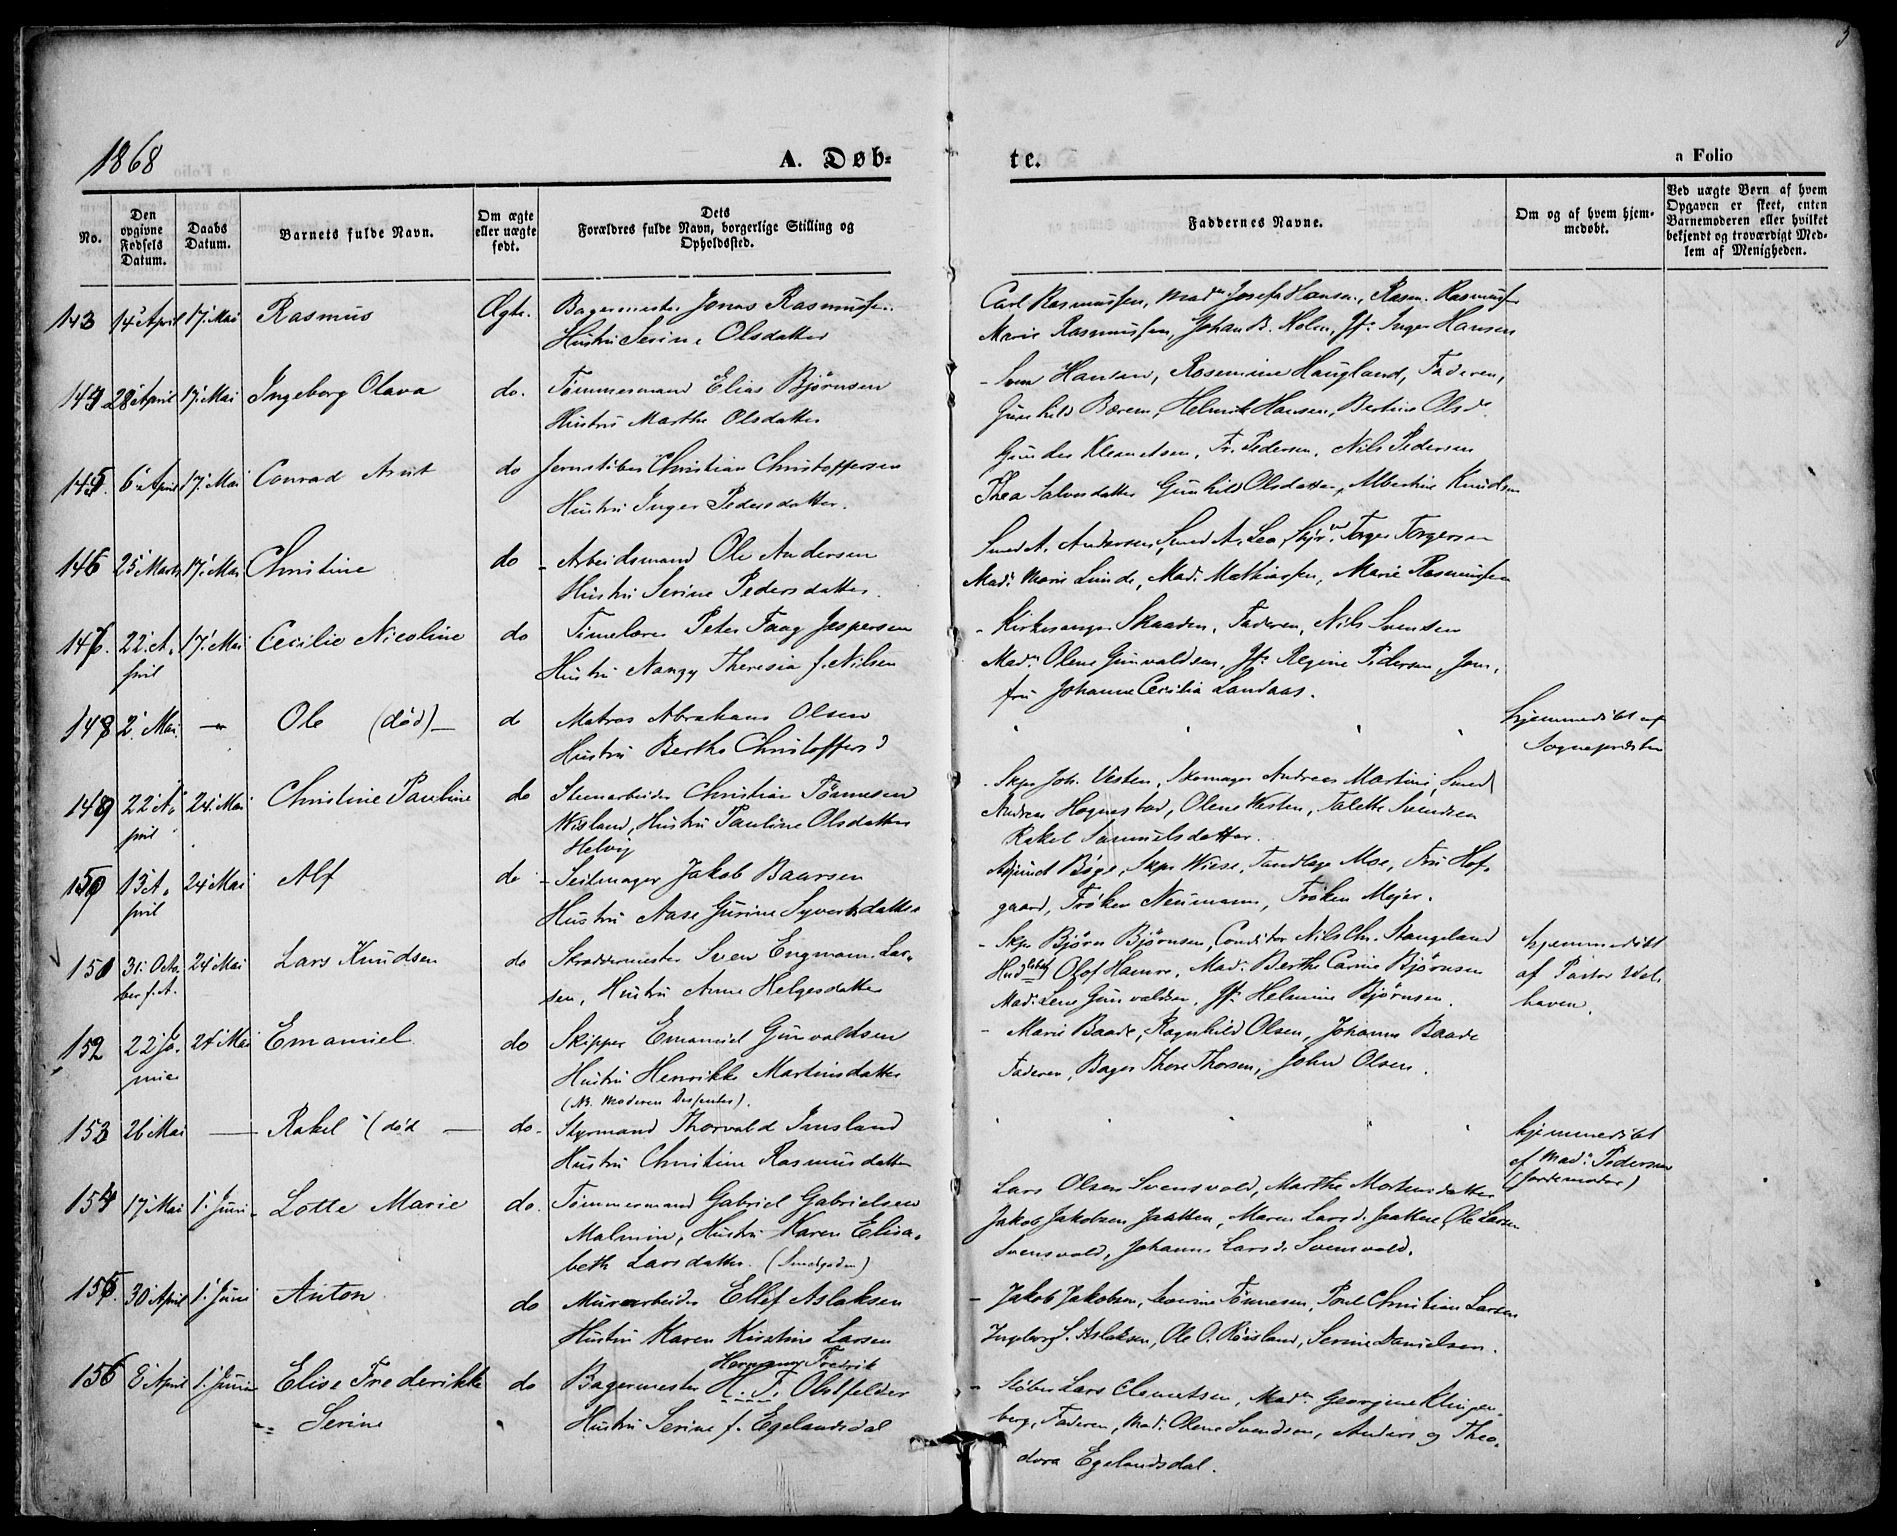 3
1868
A. Døb-
te.
a Folio
No.
Den opgivne Fødsels Datum.
Daabs Datum.
Barnets fulde Navn.
Om ægte eller uægte født.
Dets Forældres fulde Navn, borgerlige Stilling og Opholdssted.
Faddernes Navne.
Om og af hvem hjem-medøbt.
Ved uægte Børn af hvem Opgaven er skeet, enten Barnemoderen eller hvilket bekjendt og troværdigt Med-lem af Menigheden.
143 14 April 17. Mai Rasmus Ægte. Bagermester Jonas Rasmussen
Hustru Serine Olsdatter
Carl Rasmussen, Mad. Josefa Hansen, Rasm. Rasmussen
Marie Rasmussen, Johan B. Holm, Jf. Inger Hansen
144 28 April 17. Mai Ingeborg Olava do. Tømmermand Elias Bjørnsen
Hustru Marthe Olsdatter
Sven Hansen, Rosemine Haugland, Faderen,
Gunhild Bærem, Helmik Hansen, Bertine Olsd.
145. 6 April 17. Mai Conrad Arnt do Jernstøber Christian Christoffersen
Hustru Inger Pedersdatter.
Gunder Klemetsen, Fr. Pedersen, Nils Pedersen
Thea Salvesdatter Gunhild Olsdatter, Albertine Knudsen
146 25 Marts 17. Mai Christine do Arbeidsmand Ole Andersen
Hustru Serine Pedersdatter.
Smed A. Andersen, Smed A. Lea, Torger Torgersen
Mad. Marie Lunde, Mad. Mathiassen, Marie Rasmussen
147. 22. April 17. Mai Cecilie Nicoline do Timelærer Peter Faag Jespersen
Hustru Nanzy Theresia f. Nilsen
Kirkesanger Skaaden, Faderen, Nils Svensen
Mad. Olene Gunvaldsen, Jf. Regine Pedersen, Jom-
fru Johanne Cecilia Landaas.
148 2. Mai — Ole (død) — do Matros Abraham Olsen
Hustru Berthe Christoffersd
hjemmedøbt af
Sognepresten
149 22 April 24. Mai Christine Pauline do Steenarbeider Christian Tønnesen
Wisland, Hustru Pauline Olsdatter
Helvig
Skpr Joh. Vesten, Skomager Andreas Martinis, Smed
Andreas Hognestad, Olene Westen, Talette Svendsen
Rakel Samuelsdatter.
150 13 April 24 Mai Alf do Seilmager Jakob Baarsen
Hustru Aase Gurine Syvertsdatter
Adjunct Bøge, Skpr Wiese, Tandlæge Moe, Fru Hof-
gaard, Frøken Neumann, Frøken Mejer.
151 31. Octo-
ber f. A. 24 Mai Lars Knudsen do Skræddermester Sven Engmann Lar-
sen, Hustru Anne Helgesdatter
Skpr Bjørn Bjørnsen, Conditor Nils Chr. Stangeland
Olof Hamre, Mad. Berthe Carine Bjørnsen
Mad. Lene Gunvaldsen, Jf. Helmine Bjørnsen.
hjemmedøbt
af Pastor Wel-
haven.
152 22 Ja-
nuar 24 Mai Emanuel do Skipper Emanuel Gunvaldsen
Hustru Henrikke Martinsdatter
(NB. Moderen Dissenter).
Marie Baade, Ragnhild Olsen, Johanne Baade
Faderen, Bager Thore Thorsen, John Olsen.
153 26 Mai — Rakel (død — do. Styrmand Thorvald Imsland
Hustru Christine Rasmusdatter
hjemmedøbt
af Mad. Pedersen
(Jordemoder)
154 17 Mai 1. Juni Lotte Marie do. Tømmermand Gabriel Gabrielsen
Malmin, Hustru Karen Elisa-
beth Larsdatter. (Smalgaden)
Lars Olsen Svensvold, Marthe Mortensdatter
Jakob Jakobsen Jaatten, Maren Larsd. Jaatten, Ole Larsen
Svensvold, Johanne Larsd. Svensvold.
155. 30 April 1. Juni Anton do Murarbeider Ellef Aslaksen
Hustru Karen Kirstine Larsen
Jakob Jakobsen, Severine Tønnesen, Poul Christian Larsen
Ingeborg S. Aslaksen, Ole O. Røisland, Serine Danielsen.
156 8 April 1. Juni Elise Frederikke
Serine do
Hermann Fredrik
Bagermester H. F. Obstfelder
Hustru Serine f. Egelandsdal
Støber Lars Clemetsen, Mad. Georgine Klingen-
berg, Faderen, Mad. Olene Svendsen, Anders og Theo-
dora Egelandsdal.